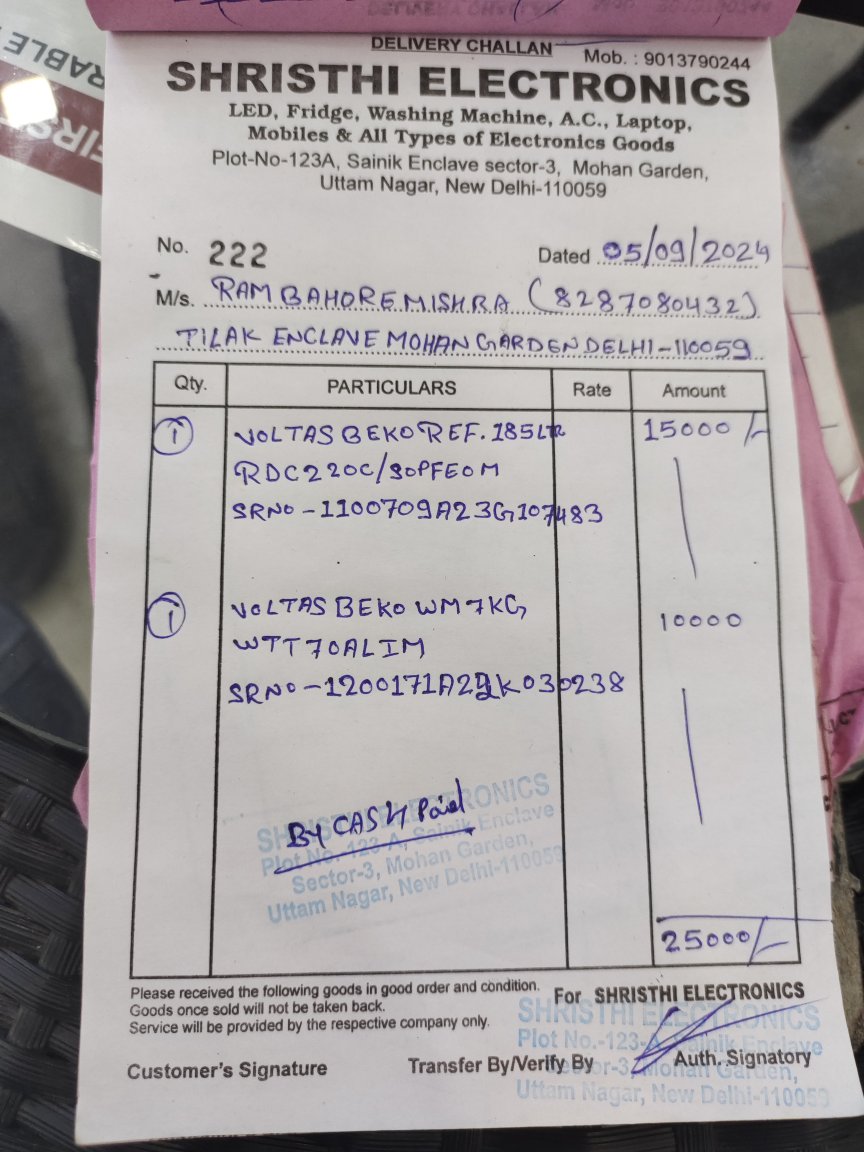 DELIVERY CHALLAN
Mob. : 9013790244
SHRISTHI ELECTRONICS
LED, Fridge, Washing Machine, A.C., Laptop,
Mobiles & All Types of Electronics Goods
Plot-No-123A, Sainik Enclave sector-3, Mohan Garden,
Uttam Nagar, New Delhi-110059
No. 222 Dated 05/09/2024
M/s. RAM BAHORE MISHRA (8287080432)
TILAK ENCLAVE MOHAN GARDEN DELHI-110059
Qty. PARTICULARS Rate Amount
1 VOLTAS BEKO REF. 185LTR 15000/-
RDC220C/SOPFEOM
SRNO-1100709A23G107483
1 VOLTAS BEKO WM 7KG 10000
WTT70ALIM
SRNO-1200171A22K030238
BY CASH Paid
SHRISTHI ELECTRONICS
Plot No. 123-A, Sainik Enclave
Sector-3, Mohan Garden,
Uttam Nagar, New Delhi-110059
25000/-
Please received the following goods in good order and condition.
Goods once sold will not be taken back.
Service will be provided by the respective company only.
For SHRISTHI ELECTRONICS
SHRISTHI ELECTRONICS
Plot No.-123-A, Sainik Enclave
Sector-3, Mohan Garden,
Uttam Nagar, New Delhi-110059
Customer's Signature Transfer By/Verify By Auth. Signatory